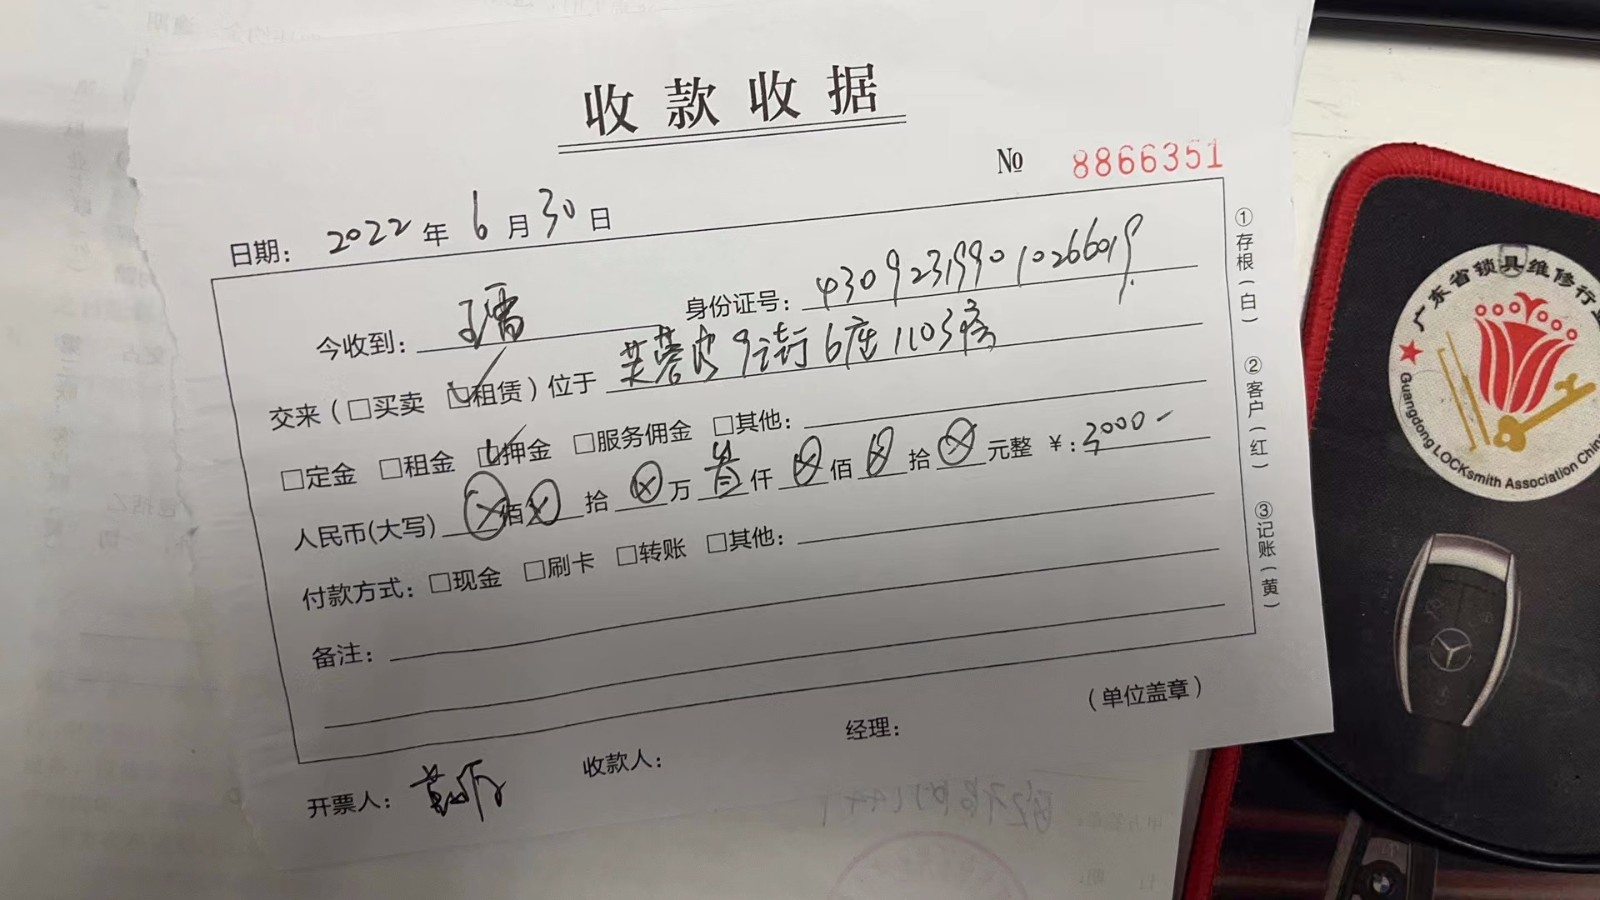 收款收据
No 8866351
日期: 2022年6月30日
今收到: 身份证号: 430923199010266019
交来(□买卖 ☑租赁)位于 芙蓉 9街6座1103房
□定金 □租金 ☑押金 □服务佣金 □其他:
人民币(大写) ⊗佰⊗拾⊗万叁仟⊗佰⊗拾⊗元整 ¥: 3000-
付款方式: □现金 □刷卡 □转账 □其他:
备注:
(单位盖章)
开票人: 收款人: 经理:
①存根(白) ②客户(红) ③记账(黄)
广东省锁具维修行业
Guangdong LOCKsmith Association China